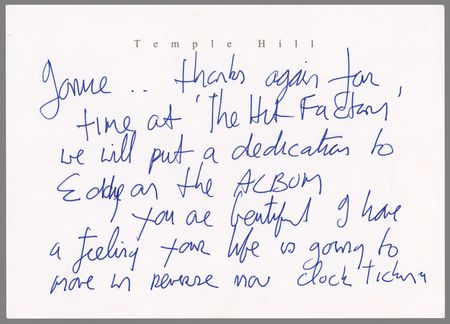 Temple Hill
Janie .. thanks again for
time at 'The Hit Factory'
we will put a dedication to
Eddy on the ALBUM
you are beautiful I have
a feeling your life is going to
move in reverse now clock ticking